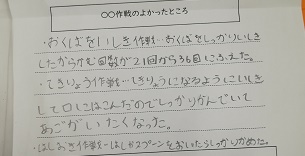 〇〇作戦のよかったところ
・おくばをいしき作戦…おくばをしっかりいしき
したからかむ回数が21回から36回にふえた。
・てきりょう作戦…てきりょうになるようにいしき
して口にはこんだのでしっかりかんでいて
あごがいたくなった。
・はしおき作戦…はしかスプーンをおいたらしっかりかめた。